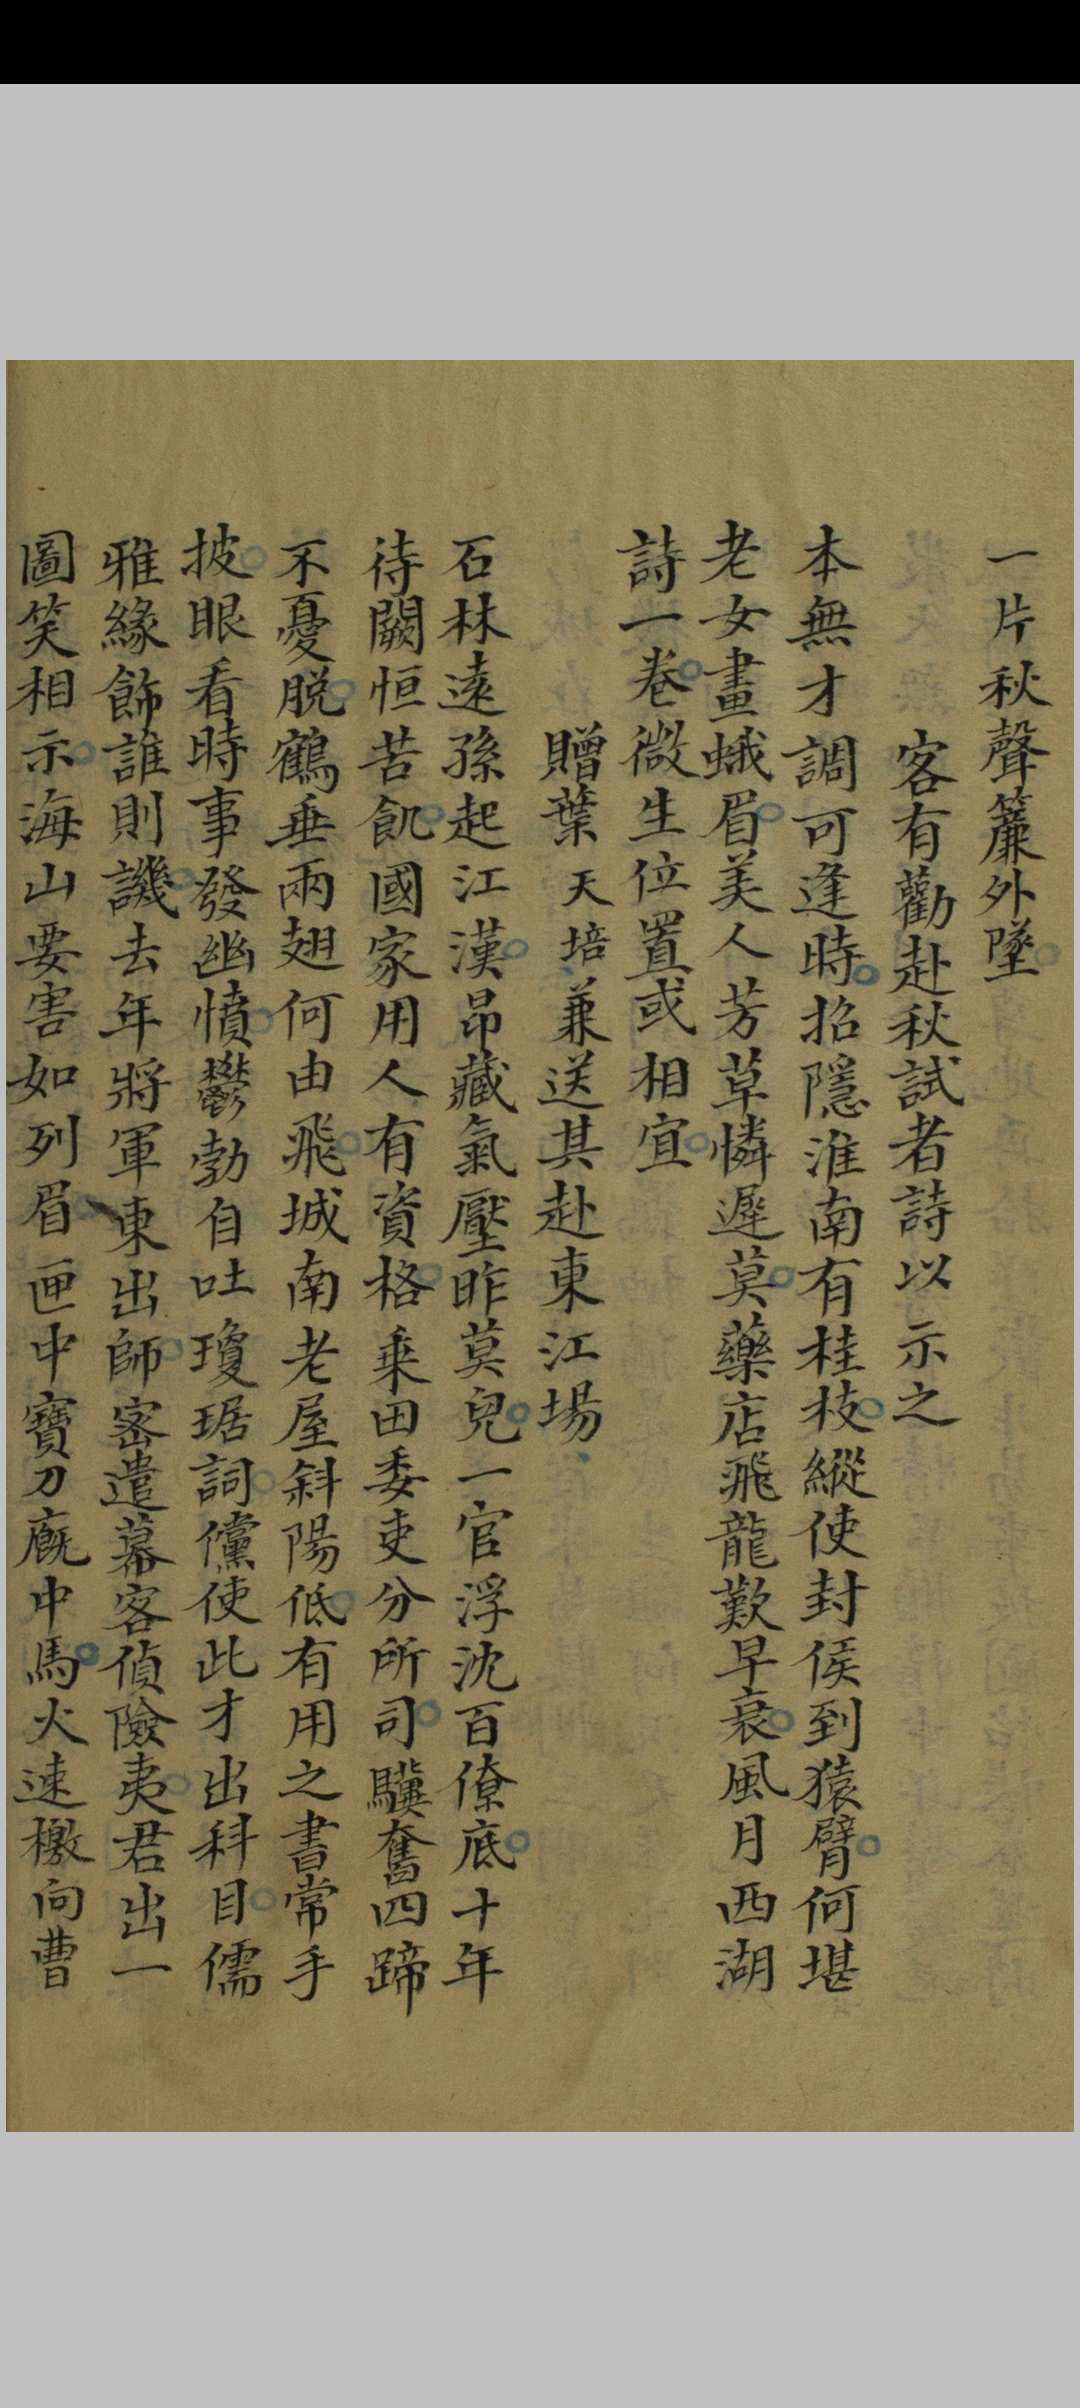 一片秋聲簾外墜
客有勸赴秋試者詩以示之
本無才調可逢時招隱淮南有桂枝縱使封侯到猿臂何堪
老女畫蛾眉美人芳草憐遲莫藥店飛龍歎早衰風月西湖
詩一卷微生位置或相宜
贈葉天培兼送其赴東江場
石林遠孫起江漢昂藏氣壓昨莫兒一官浮沈百僚底十年
待闕恒苦飢國家用人有資格乘田委吏分所司驥奮四蹄
不憂脫鶴垂兩翅何由飛城南老屋斜陽低有用之書常手
披眼看時事發幽憤鬱勃自吐瓊琚詞儻使此才出科目儒
雅緣飾誰則譏去年將軍東出師密遣幕客偵險夷君出一
圖笑相示海山要害如列眉匣中寶刀廐中馬火速檄向曹